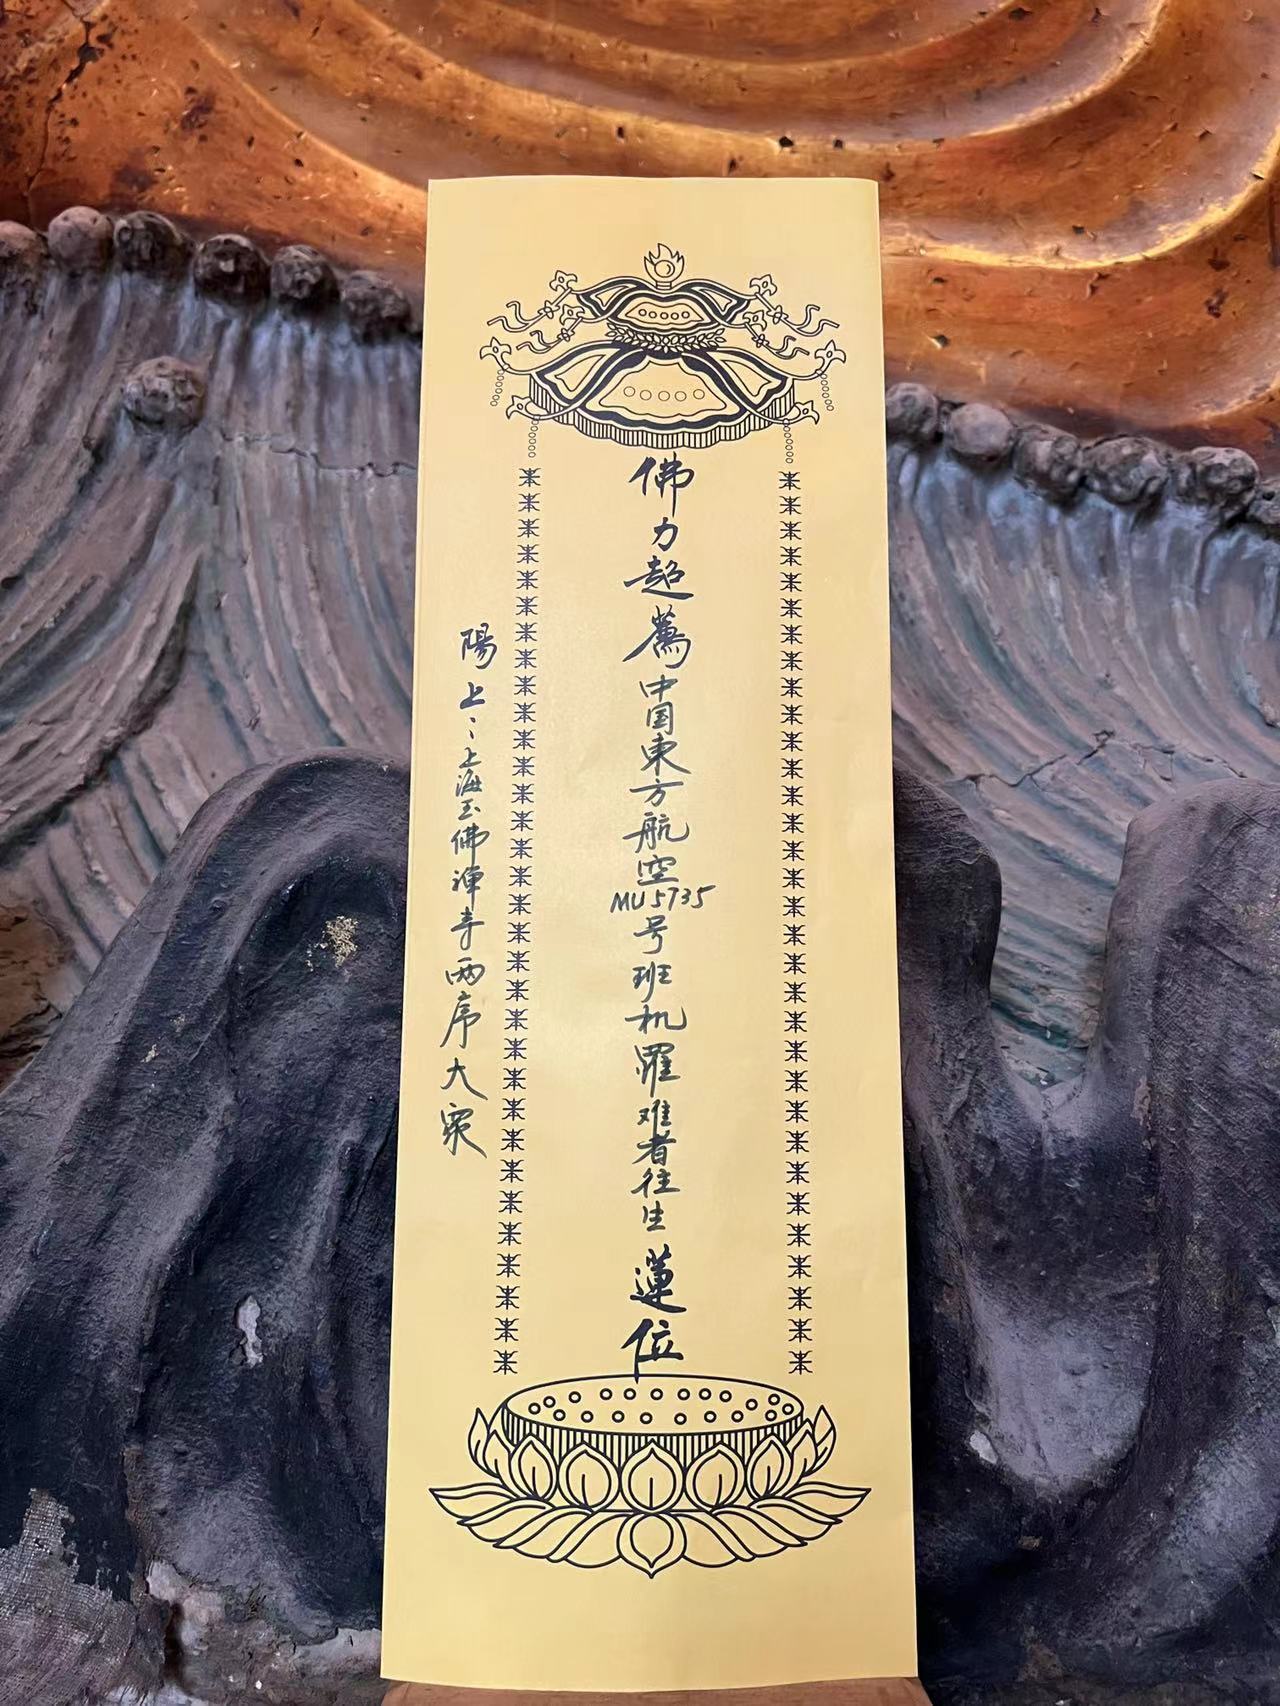 佛力超薦中国東方航空MU5735号班机羅难者往生蓮位
陽上：上海玉佛禅寺两序大衆